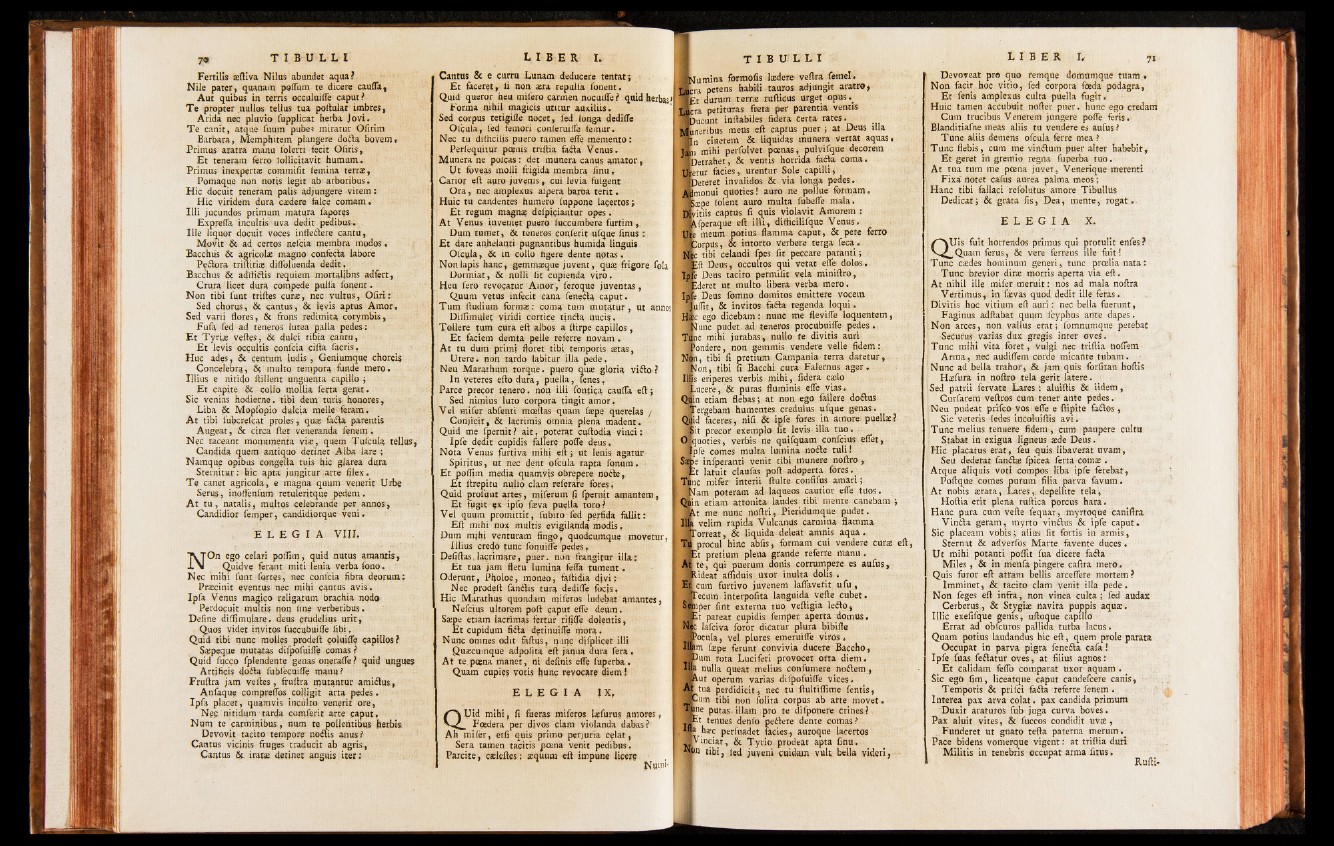 70 TIBULLI
Fertilis æstiva Nilus abundet aqua?
Nile pater, quanam possum te dicere caussa,
Aut quibus in terris occuluisse caput?
Te propter nullos tellus tua postulat imbres,
Arida nec pluvio supplicat herba Jovi.
Te canit, atque suum pubes miratur Osirim
Barbara, Memphitem plangere docta bovem,
Primus aratra manu solerti fecit Osiris,
Et teneram ferro sollicitavit humum.
Primus inexpertæ commisit semina terræ,
Pomaque non notis legit ab arboribus.
Hic docuit teneram palis adjungere vitem:
Hic viridem dura cædere falce comam.
Illi jucundos primum matura sapores
Expressa incultis uva dedit pedibus.
Ille liquor docuit voces inflectere cantu,
Movit & ad certos nescia membra modos.
Bacchus & agricolæ magno confecta labore
Pectora tristitiæ dissoluenda dedit.
Bacchus & adflictis requiem mortalibus adfert,
Crura licet dura compede pulsa sonent.
Non tibi sunt tristes curæ, nec vultus, Osiri:
Sed chorus, & cantus, & levis aptus Amor.
Sed varii flores, & frons redimita corymbis,
Fusa sed ad teneros lutea palla pedes:
Et Tyriæ vestes, & dulci tibia cantu,
Et levis occultis conscia cista sacris.
Huc ades, & centum ludis, Geniumque choreis
Concelebra, & multo tempora funde mero.
Illius e nitido stillent unguenta capillo;
Et capite & collo mollia serta gerat.
Sic venias hodierne. tibi dem turis honores,
Liba & Mopsopio dulcia melle feram.
At tibi subcrescat proles, quæ facta parentis
Augeat, & circa stet veneranda senem.
Nec taceant monumenta viæ, quem Tuscula tellus,
Candida quem antiquo detinet Alba lare;
Namque opibus congesta tuis hic glarea dura
Sternitur: hic apta jungitur arte silex.
Te canet agricola, e magna quum venerit Urbe
Serus, inoffensum retuleritque pedem.
At tu, natalis, multos celebrande per annos,
Candidior semper, candidiorque veni.
ELEGIA VIII.
NOn ego celari possim, quid nutus amantis,
Quidve ferant miti lenia verba sono.
Nec mihi sunt sortes, nec conscia fibra deorum:
Præcinit eventus nec mihi cantus avis.
Ipsa Venus magico religatum brachia nodo
Perdocuit multis non sine verberibus.
Desine dissimulare. deus crudelius urit,
Quos videt invitos succubuisse sibi.
Quid tibi nunc molles prodest coluisse capillos?
Sæpeque mutatas disposuisse comas?
Quid fucco splendente genas onerasse? quid ungues
Artificis docta subsecuisse manu?
Frustra jam vestes, frustra mutantur amictus,
Ansaque compressos colligit arta pedes.
Ipsa placet, quamvis inculto venerit ore,
Nec nitidum tarda comserit arte caput.
Num te carminibus, num te pollentibus herbis
Devovit tacito tempore noctis anus?
Cantus vicinis fruges traducit ab agris,
Cantus & iratæ detinet anguis iter:
LIBER I.
Cantus & e curru Lunam deducere tentat;
Et faceret, si non æra repulsa sonent.
Quid queror heu misero carmen nocuisse? quid herbas?
Forma nihil magicis utitur auxiliis.
Sed corpus tetigisse nocet, sed longa dedisse
Oscula, sed femori conseruisse femur.
Nec tu difficilis puero tamen esse memento:
Persequitur pœnis tristia facta Venus.
Munera ne poscas: det munera canus amator,
Ut foveas molli frigida membra sinu.
Carior est auro juvenis, cui levia fulgent
Ora, nec amplexus aspera barba terit.
Huic tu candentes humero suppone lacertos;
Et regum magnæ despiciantur opes.
At Venus inveniet puero succumbere furtim,
Dum tumet, & teneros conserit usque sinus:
Et dare anhelanti pugnantibus humida linguis
Oscula, & in collo figere dente notas.
Non lapis hanc, gemmæque juvent, quæ frigore sola
Dormiat, & nulli sit cupienda viro.
Heu sero revocatur Amor, seroque juventas,
Quum vetus infecit cana senecta caput.
Tum studium formæ: coma tum mutatur, ut annos
Dissimulet viridi cortice tincta nucis.
Tollere tum cura est albos a stirpe capillos,
Et faciem demta pelle referre novam.
At tu dum primi floret tibi temporis ætas,
Utere. non tardo labitur illa pede.
Neu Marathum torque. puero quæ gloria victo?
In veteres esto dura, puella, senes.
Parce precor tenero. non illi sontica caussa est;
Sed nimius luto corpora tingit amor.
Vel miser absenti mœstas quam sæpe querelas
Conjicit, & lacrimis omnia plena madent.
Quid me spernit? ait. poterat custodia vinci:
Ipse dedit cupidis fallere posse deus.
Nota Venus furtiva mihi est; ut lenis agatur
Spiritus, ut nec dent oscula rapta sonum.
Et possim media quamvis obrepere nocte,
Et strepitu nullo clam reserare fores.
Quid prosunt artes, miserum si spernit amantem,
Et fugit ex ipso sæva puella toro?
Vel quum promittit, subito sed perfida fallit:
Est mihi nox multis evigilanda modis.
Dum mihi venturam fingo, quodcumque movetur,
Illius credo tunc sonuisse pedes.
Desistas lacrimare, puer. non frangitur illa:
Et tua jam fletu lumina fessa tument.
Oderunt, Pholoe, moneo, fastidia divi:
Nec prodest sanctis tura dedisse focis.
Hic Marathus quondam miseros ludebat amantes,
Nescius ultorem post caput esse deum.
Sæpe etiam lacrimas fertur risisse dolentis,
Et cupidum ficta detinuisse mora.
Nunc omnes odit fastus, nunc displicet illi
Quæcumque adposita est janua dura sera.
At te pœna manet, ni desinis esse superba.
Quam cupies votis hunc revocare diem!
ELEGIA IX.
QUid mihi, si fueras miseros læsurus amores,
Fœdera per divos clam violanda dabas?
Ah miser, etsi quis primo perjuria celat,
Sera tamen tacitis pœna venit pedibus.
Parcite, cælestes: æquum est impune licere
Numi-
TIBULLI
Numina formosis lædere vestra semel.
Lucra petens habili tauros adjungit aratro,
Et durum terræ rusticus urget opus.
Lucra petituras freta per parentia ventis
Ducunt instabiles sidera certa rates.
Muneribus meus est captus puer; at Deus illa
In cinerem & liquidas munera vertat aquas.
Jam mihi persolvet pœnas, pulvisque decorem
Detrahet, & ventis horrida facta coma.
Uretur facies, urentur Sole capilli,
Deteret invalidos & via longa pedes.
Admonui quoties! auro ne pollue formam.
Sæpe solent auro multa subesse mala.
Divitiis captus si quis violavit Amorem:
Asperaque est illi, difficilisque Venus.
Ure meum potius flamma caput, & pete ferro
Corpus, & intorto verbere terga seca.
Nec tibi celandi spes sit peccare paranti;
Est Deus, occultos qui vetat esse dolos.
Ipse Deus tacito permisit vela ministro,
Ederet ut multo libera verba mero.
Ipse Deus somno domitos emittere vocem
Jussit, & invitos facta regenda loqui.
Hæc ego dicebam: nunc me flevisse loquentem,
Nunc pudet ad teneros procubuisse pedes.
Tunc mihi jurabas, nullo te divitis auri
Pondere, non gemmis vendere velle fidem:
Non, tibi si pretium Campania terra daretur,
Non, tibi si Bacchi cura Falernus ager.
Illis eriperes verbis mihi, sidera cælo
Lucere, & puras fluminis esse vias.
Quin etiam flebas; at non ego fallere doctus
Tergebam humentes credulus usque genas.
Quid faceres, nisi & ipse fores in amore puellæ?
Sit precor exemplo sit levis illa tuo.
O quoties, verbis ne quisquam conscius esset,
Ipse comes multa lumina nocte tuli!
Sæpe insperanti venit tibi munere nostro,
Et latuit clausas post adoperta fores.
Tunc miser interii stulte confisus amari;
Nam poteram ad laqueos cautior esse tuos.
Quin etiam attonita laudes tibi mente canebam;
At me nunc nostri, Pieridumque pudet.
Illa velim rapida Vulcanus carmina flamma
Torreat, & liquida deleat amnis aqua.
Tu procul hinc absis, formam cui vendere curæ est,
Et pretium plena grande referre manu.
At te, qui puerum donis corrumpere es ausus,
Rideat assiduis uxor inulta dolis.
Et cum furtivo juvenem lassaverit usu,
Tecum interposita languida veste cubet.
Semper sint externa tuo vestigia lecto,
Et pateat cupidis semper aperta domus.
Nec lasciva soror dicatur plura bibisse
Pocula, vel plures emeruisse viros.
Illam sæpe ferunt convivia ducere Baccho,
Dum rota Luciferi provocet orta diem.
Illa nulla queat melius consumere noctem,
Aut operum varias disposuisse vices.
At tua perdidicit, nec tu stultissime sentis,
Cum tibi non solita corpus ab arte movet.
Tune putas illam pro te disponere crines?
Et tenues denso pectere dente comas?
Ista hæc persuadet facies, auroque lacertos
Vinciat, & Tyrio prodeat apta sinu.
Non tibi, sed juveni cuidam vult bella videri,
LIBER I. 71
Devoveat pro quo remque domumque tuam.
Non facit hoc vitio, sed corpora fœda podagra,
Et senis amplexus culta puella fugit.
Huic tamen accubuit noster puer. hunc ego credam
Cum trucibus Venerem jungere posse feris.
Blanditiasne meas aliis tu vendere es ausus?
Tune aliis demens oscula ferre mea?
Tunc flebis, cum me vinctum puer alter habebit,
Et geret in gremio regna superba tuo.
At tua tum me pœna juvet, Venerique merenti
Fixa notet casus aurea palma meos;
Hanc tibi fallaci resolutus amore Tibullus
Dedicat; & grata sis, Dea, mente, rogat.
ELEGIA X.
QUis fuit horrendos primus qui protulit enses?
Quam ferus, & vere ferreus ille fuit!
Tunc cædes hominum generi, tunc prœlia nata:
Tunc brevior diræ mortis aperta via est.
At nihil ille miser meruit: nos ad mala nostra
Vertimus, in sævas quod dedit ille feras.
Divitis hoc vitium est auri: nec bella fuerunt,
Faginus adstabat quum scyphus ante dapes.
Non arces, non vallus erat; somnumque petebat
Securus varias dux gregis inter oves.
Tunc mihi vita foret, vulgi nec tristia nossem
Arma, nec audissem corde micante tubam.
Nunc ad bella trahor, & jam quis forsitan hostis
Hæsura in nostro tela gerit latere.
Sed patrii servate Lares: aluistis & iidem,
Cursarem vestros cum tener ante pedes.
Neu pudeat prisco vos esse e stipite factos,
Sic veteris sedes incoluistis avi.
Tunc melius tenuere fidem, cum paupere cultu
Stabat in exigua ligneus æde Deus.
Hic placatus erat, seu quis libaverat uvam,
Seu dederat sanctæ spicea serta comæ.
Atque aliquis voti compos liba ipse ferebat,
Postque comes purum filia parva favum.
At nobis ærata, Lares, depellite tela,
Hostia erit plena rustica porcus hara.
Hanc pura cum veste sequar, myrtoque canistra
Vincta geram, myrto vinctus & ipse caput.
Sic placeam vobis; alius sit fortis in armis,
Sternat & adversos Marte favente duces.
Ut mihi potanti possit sua dicere facta
Miles, & in mensa pingere castra mero.
Quis furor est atram bellis arcessere mortem?
Imminet, & tacito clam venit illa pede.
Non seges est infra, non vinea culta; sed audax
Cerberus, & Stygiæ navita puppis aquæ.
Illic exesisque genis, ustoque capillo
Errat ad obscuros pallida turba lacus.
Quam potius laudandus hic est, quem prole parata
Occupat in parva pigra senecta casa!
Ipse suas sectatur oves, at filius agnos:
Et calidam fesso comparat uxor aquam.
Sic ego sim, liceatque caput candescere canis,
Temporis & prisci facta referre senem.
Interea pax arva colat. pax candida primum
Duxit araturos sub juga curva boves.
Pax aluit vites, & succos condidit uvæ,
Funderet ut gnato testa paterna merum.
Pace bidens vomerque vigent: at tristia duri
Militis in tenebris occupat arma situs.
Rusti-